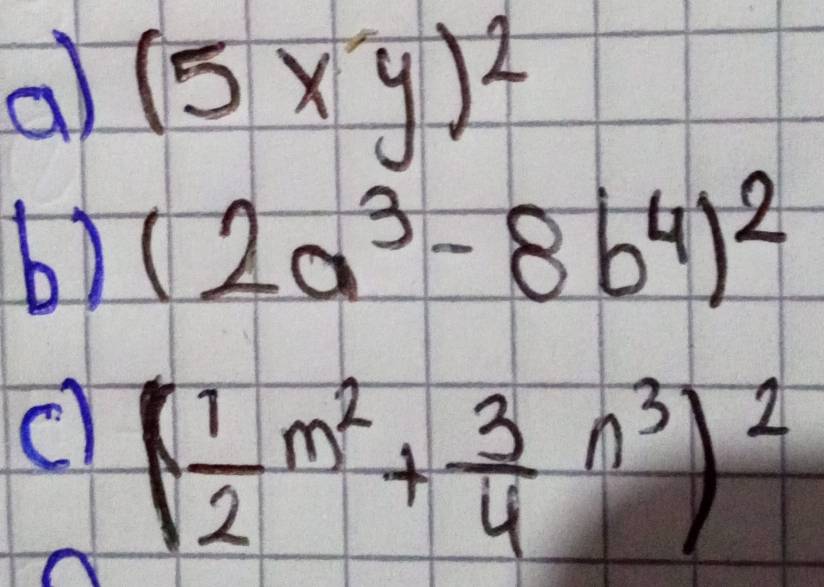 a) (5xy)²
b) (2a³ - 8b⁴)²
c) (1/2 m² + 3/4 n³)²